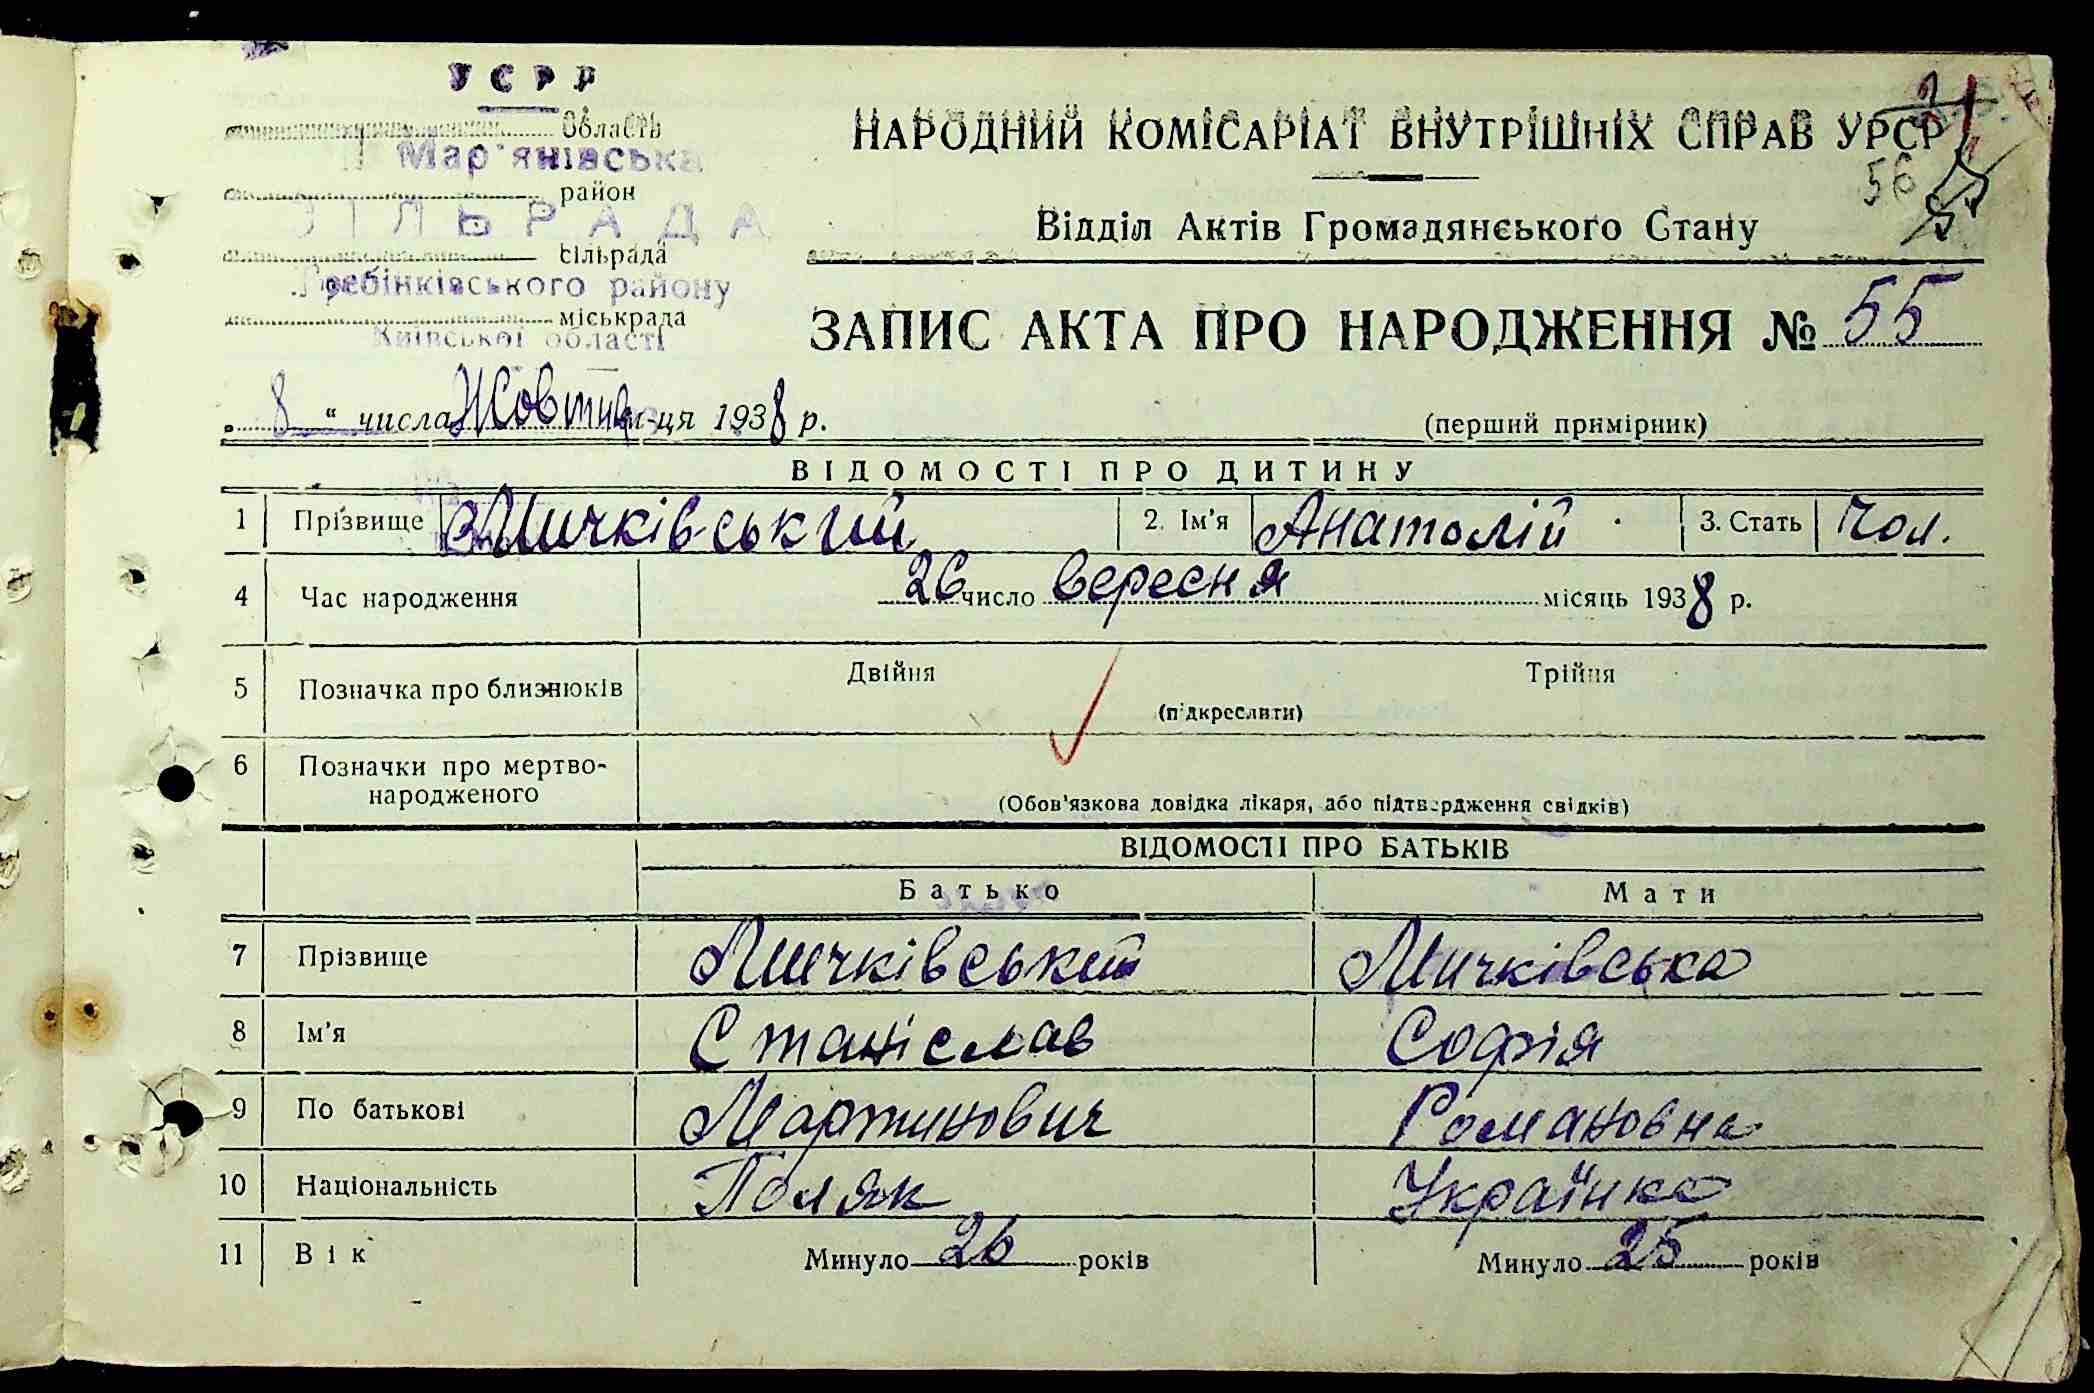 УСРР
Область
Мар'янівська
район
СІЛЬРАДА
сільрада
Гребінківського району
міськрада
Київської області
НАРОДНИЙ КОМІСАРІАТ ВНУТРІШНІХ СПРАВ УРСР
56
Відділ Актів Громадянського Стану
ЗАПИС АКТА ПРО НАРОДЖЕННЯ № 55
„ 8 “ числа Жовтня м-ця 1938 р.
(перший примірник)
ВІДОМОСТІ ПРО ДИТИНУ
1 Прізвище Мичківський 2. Ім'я Анатолій 3. Стать Чол.
4 Час народження 26 число вересня місяць 1938 р.
5 Позначка про близнюків Двійня Трійня
(підкреслити)
6 Позначки про мертво-
народженого
(Обов'язкова довідка лікаря, або підтвердження свідків)
ВІДОМОСТІ ПРО БАТЬКІВ
Батько Мати
7 Прізвище Мичківський Мичківська
8 Ім'я Станіслав Софія
9 По батькові Мартинович Романовна
10 Національність Поляк Українка
11 Вік Минуло 26 років Минуло 25 років